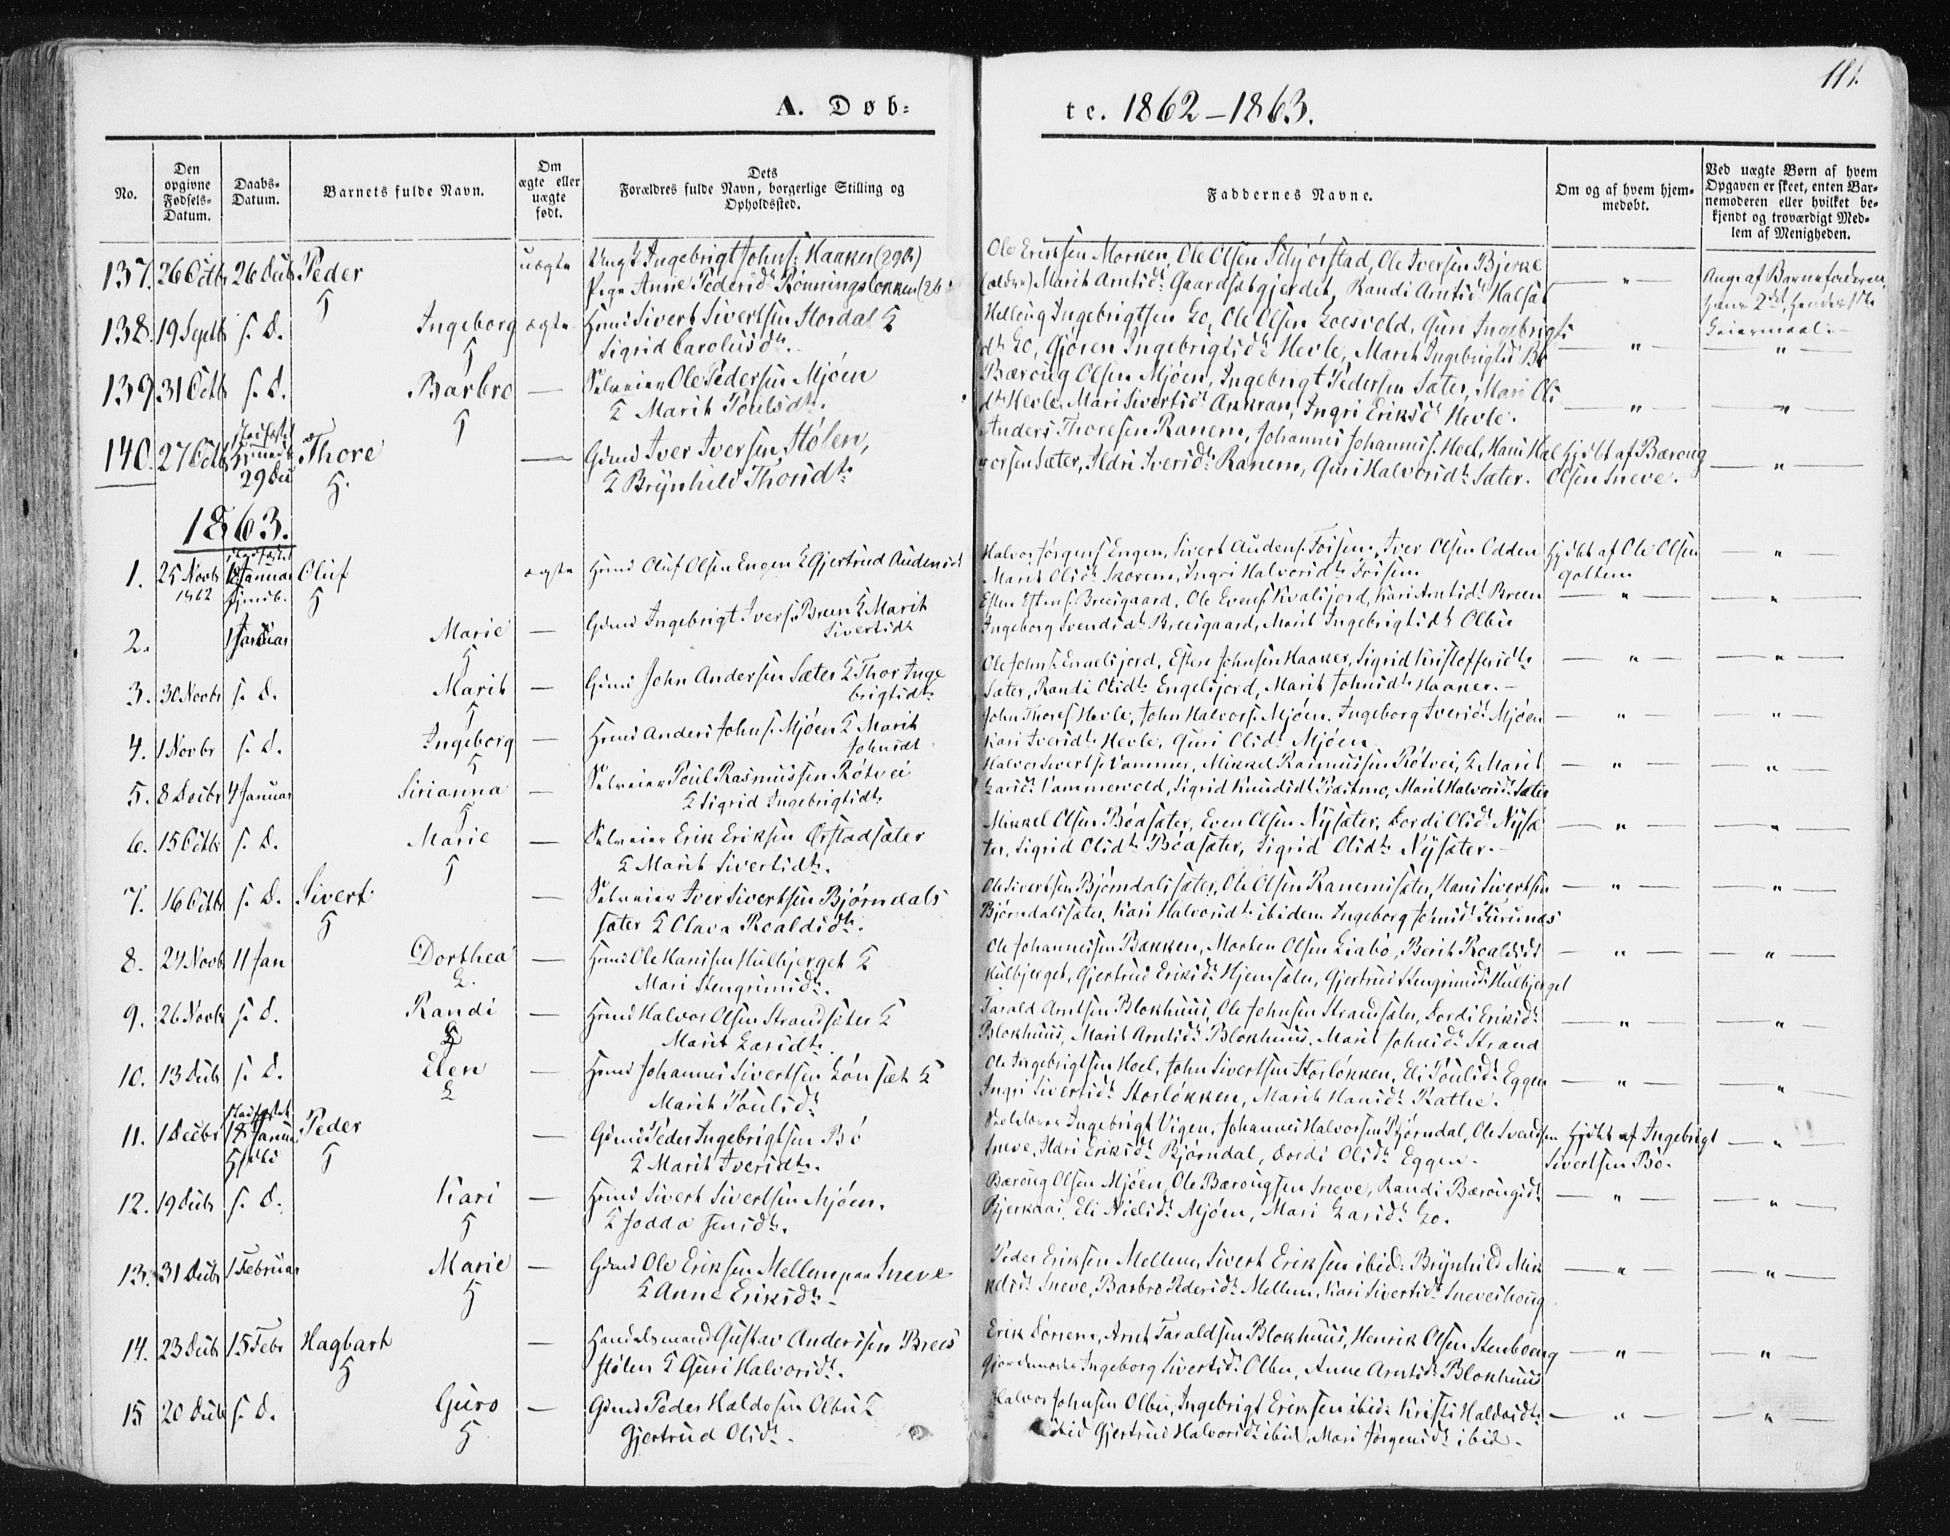 111.
A. Døb-
te. 1862-1863.
No.
Den opgivne Fødsels-Datum.
Daabs-Datum.
Barnets fulde Navn.
Om ægte eller uægte født.
Dets Forældres fulde Navn, borgerlige Stilling og Opholdssted.
Faddernes Navne.
Om og af hvem hjem-medøbt.
Ved uægte Børn af hvem Opgaven er skeet, enten Bar-nemoderen eller hvilket be-kjendt og troværdigt Med-lem af Menigheden.
137. 26 Octb 26 Decb Peder uægte Ungk Ingebrigt Johns. Haaker (29 A)
Pige Anne Pedersdt Rønningsløkken (26
Ole Eriksen Morken, Ole Olsen Stujørstad, Ole Iversen Bjerke
(ældre) Marit Arntsdt Gaardsætgjerdet, Randi Arntsdt Halsæt
Angr af Barnefaderen,
hans 2det, hendes 1ste
Leiermaal.
138. 19 Septb s. D. Ingeborg ægte Hmd Sivert Sivertsen Stordal &
Sigrid Carolusdt.
Ingebrigtsen Lo, Ole Olsen Loesvold, Guri Ingebrigts
dt Lo, Gjøren Ingebrigtsdt Hevle, Marit Ingebrigtsd Bö
139 31 Octb s. D. Barbro — Selveier Ole Pedersen Mjöen
& Marit Poulsdt.
Bæroug Olsen Mjöen, Ingebrigt Pedersen Sæter, Mari Ols
dt Hevle, Mari Sivertsdt Aukran, Ingri Eriksdt Hevle.
140. 27 Octb stadfæstet
29 De Thore — Gdmd Iver Iversen Stölen,
& Brynhild Thorsdt
Anders Thoresen Ranem, Johannes Johanness. Hoel, Hans Hal
vorsen Sæter, Ildri Iversdt Ranem, Guri Halvorsdt Sæter.
Hjdbt af Bæroug
Olsen Sneve.
1863.
1. 25 Novb
1862 stadfæstet
1 Januar Oluf ægte Hmd Oluf Olsen Engen & Gjertrud Audensdt
Halvor Jörgens. Engen, Sivert Audens. Foisen, Iver Olsen Odden
Marit Olsdt Skorem, Ingri Halvorsdt Foisen
Hjdbt af Ole Olsen
Gottem
2. 1 Januar Marie — Gdmd Ingebrigt Ivers. Breen & Marit
Sivertsdt
Esten Estens. Breesgaard, Ole Evens. Kvalsjord, Kari Arntsdt Breen
Ingeborg Svendsdt Breesgaard, Marit Ingebrigtsdt Olbu
3. 30 Novbr s. D. Marit — Gdmd John Andersen Sæter & Thor Inge
brigtsdt
Ole Johns. Engelsjord, Esten Johnsen Haaker, Sigrid Kristoffersdt
Sæter, Randi Olsdt Engelsjord, Marit Johnsdt Haaker.
4. 1 Novbr s. D. Ingeborg — Hmd Anders Johns. Mjöen & Marit
Johnsdt
John Thores. Hevle, John Halvors. Mjöen. Ingeborg Iversdt Mjöen
Kari Iversdt Hevle, Guri Olsdt Mjöen
5. 8 Decbr 4 Januar Sirianna — Selveier Poul Rasmussen Rötvei
& Sigrid Ingebrigtsdt.
Halvor Siverts. Vammer, Mikkel Rasmussen Rötvei, & Marit
Larsdt Vammervold, Sigrid Knudsdt, Marit Halvorsdt Sæter
6. 15 Octbr s. D. Marie — Selveier Erik Eriksen Ørstadsæter
& Marit Sivertsdt.
Mikkel Olsen Böasæter, Even Olsen Nysæter, Dordi Olsdt Nysæ
ter, Sigrid Olsdt Böasæter, Sigrid Olsdt Nysæter.
7. 16 Octb s. D. Sivert — Selveier Iver Sivertsen Bjørndals
sæter & Olava Roaldsdt.
Ole Sivertsen Bjørndalssæter, Ole Olsen Ranemssæter, Hans Sivertsen
Bjørndalssæter, Kari Halvorsdt ibidem Ingeborg Johnsdt Furunæs
8. 24 Novb 11 Jan Dorthea — Hmd Ole Hansen Hulbjerget &
Mari Stengrimsdt.
Ole Johannessen Bakken, Morten Olsen Liabø, Berit Roaldsdt
Hulbjerget, Gjertrud Eriksdt Hjemsæter, Gjertrud Stengrimsdt Hulbjerget
9. 26 Novb s. D. Randi — Hmd Halvor Olsen Strandsæter &
Marit Larsdt.
Tarald Arntsen Blokhuus, Ole Johnsen Strandsæter, Dordi Eriksdt
Blokhuus, Marit Arntsdt Blokhuus, Marit Johnsdt Strand
10. 13 Decb s. D. Elen — Hmd Johannes Sivertsen Lönsæt &
Marit Poulsdt
Ole Ingebrigtsen Hoel, John Sivertsen Storløkken, Eli Poulsdt Eggen
Ingri Sivertsdt Storløkken, Marit Hansdt Rathe.
11. 1 Decbr stadfæstet
18 Januar
Hjdbt Peder — Gdmd Peder Ingebrigtsen Bö
& Marit Iversdt.
Skoleholder Ingebrigt Vigen, Johannes Halvorsen Bjørndal, Ole Svendsen
Sneve, Ildri Eriksdt Bjørndal, Dordi Olsdt Eggen.
Hjdbt af Ingebrigt
Sivertsen Bö.
12. 19 Decb s. D. Kari — Hmd Sivert Sivertsen Mjöen.
& Jodda Jensdt.
Bæroug Olsen Mjöen, Ole Bærougsen Sneve, Randi Bærougsdt
Bjerkaas, Eli Nielsdt Mjöen, Mari Larsdt Lo.
13. 31 Decb 1 Februar Marie — Gdmd Ole Eriksen Mellem paa Sneve
& Anne Eriksdt.
Peder Eriksen Mellem, Sivert Eriksen ibid: Brynhild Mik
kelsdt Sneve, Barbro Pedersdt Mellem, Kari Sivertsdt Sneveshoug
14. 23 Decb 15 Febr Hagbart — Handelsmand Gustav Anderssen Brees
stølen & Guri Halvorsdt.
Erik Dørrem, Arnt Taraldsen Blokhuus, Henrik Olsen Stenboeng
Gjordemoder Ingeborg Sivertsdt Olbu, Anne Arntsdt Blokhuus
15 20 Decb s. D. Guro — Gdmd Peder Haldosen Olbu &
Gjertrud Olsdt.
Halvor Johnsen Olbu, Ingebrigt Eriksen ibid: Kristi Haldosdt
ibid Gjertrud Halvorsdt ibid, Mari Jörgensdt ibid.